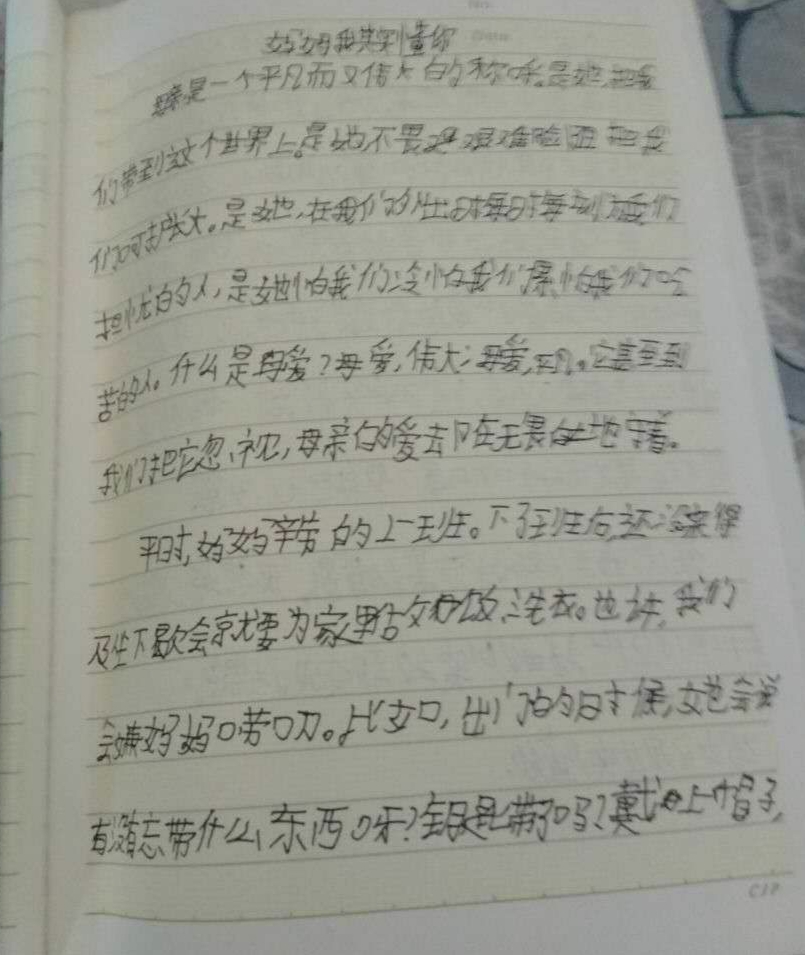 妈妈我真到懂你
母亲是一个平凡而又伟大的称呼。是她,把我
们带到这个世界上。是她不畏艰难险阻把我
们呵护长大。是她,在我们的出时每时每刻为我们
担忧的人,是她怕我们冷怕我们累怕我们吃
苦的人。什么是母爱?母爱,伟大;母爱,平凡。它甚至到
我们把它忽视,母亲的爱去口在无畏地守着。
平时,妈妈辛劳的上班。下了班后,还没来得
及坐下歇会京就要为家里做饭、洗衣。也许,我们
会嫌妈妈口苦口刀。比如,出门的时候,她会说
有没有忘带什么东西呀?钥匙带了吗?戴上帽子,